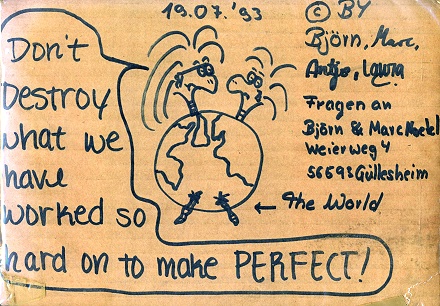 19.07.'93
© BY
Björn, Marc,
Antje, Laura
Fragen an
Björn & Marc
Weierweg 4
56593 Güllesheim
← The World
Don't
Destroy
what we
have
worked so
hard on to make PERFECT!